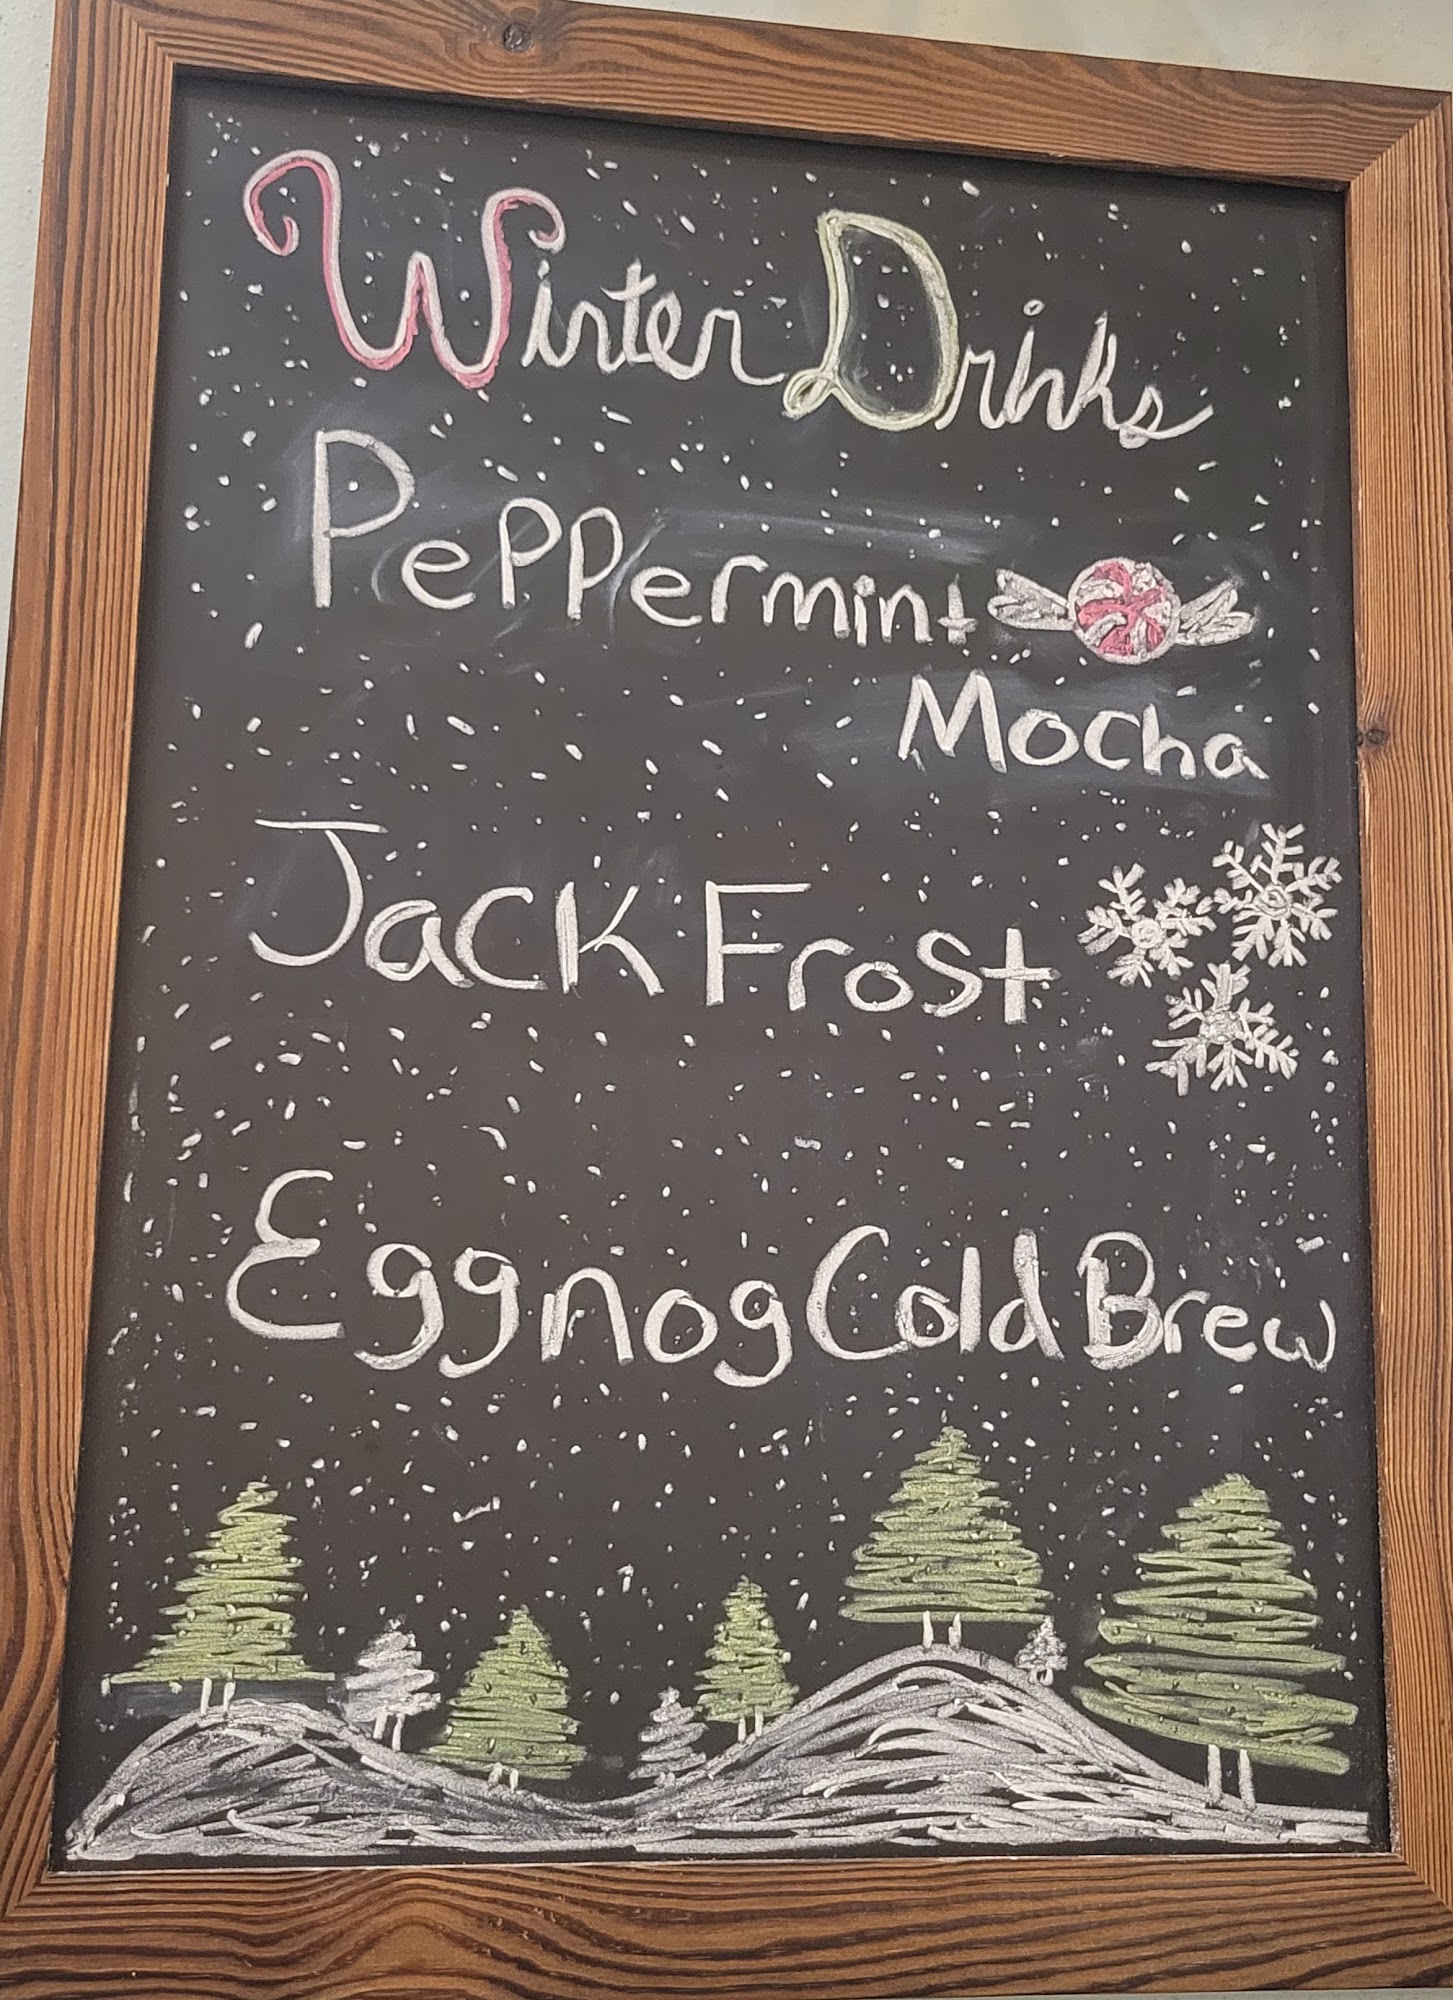 Winter Drinks
Peppermint
Mocha
Jack Frost
Eggnog Cold Brew